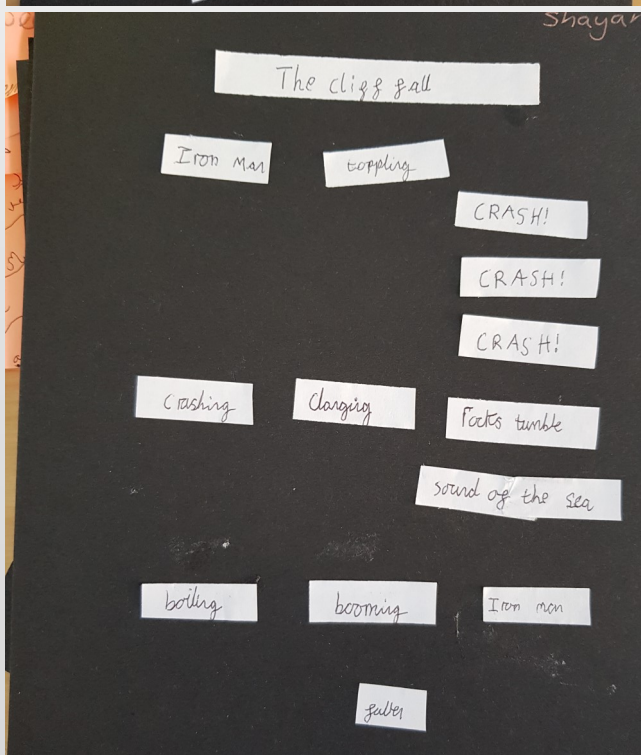 Shayan
The cliff fall
Iron Man toppling
CRASH!
CRASH!
CRASH!
Crashing Clanging Rocks tumble
sound of the sea
boiling booming Iron man